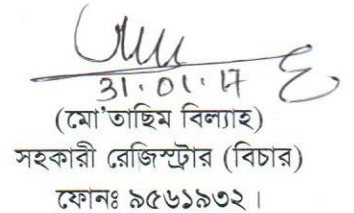 31.01.17
(মো'তাছিম বিল্যাহ)
সহকারী রেজিস্ট্রার (বিচার)
ফোনঃ ৯৫৬১৯৩২।